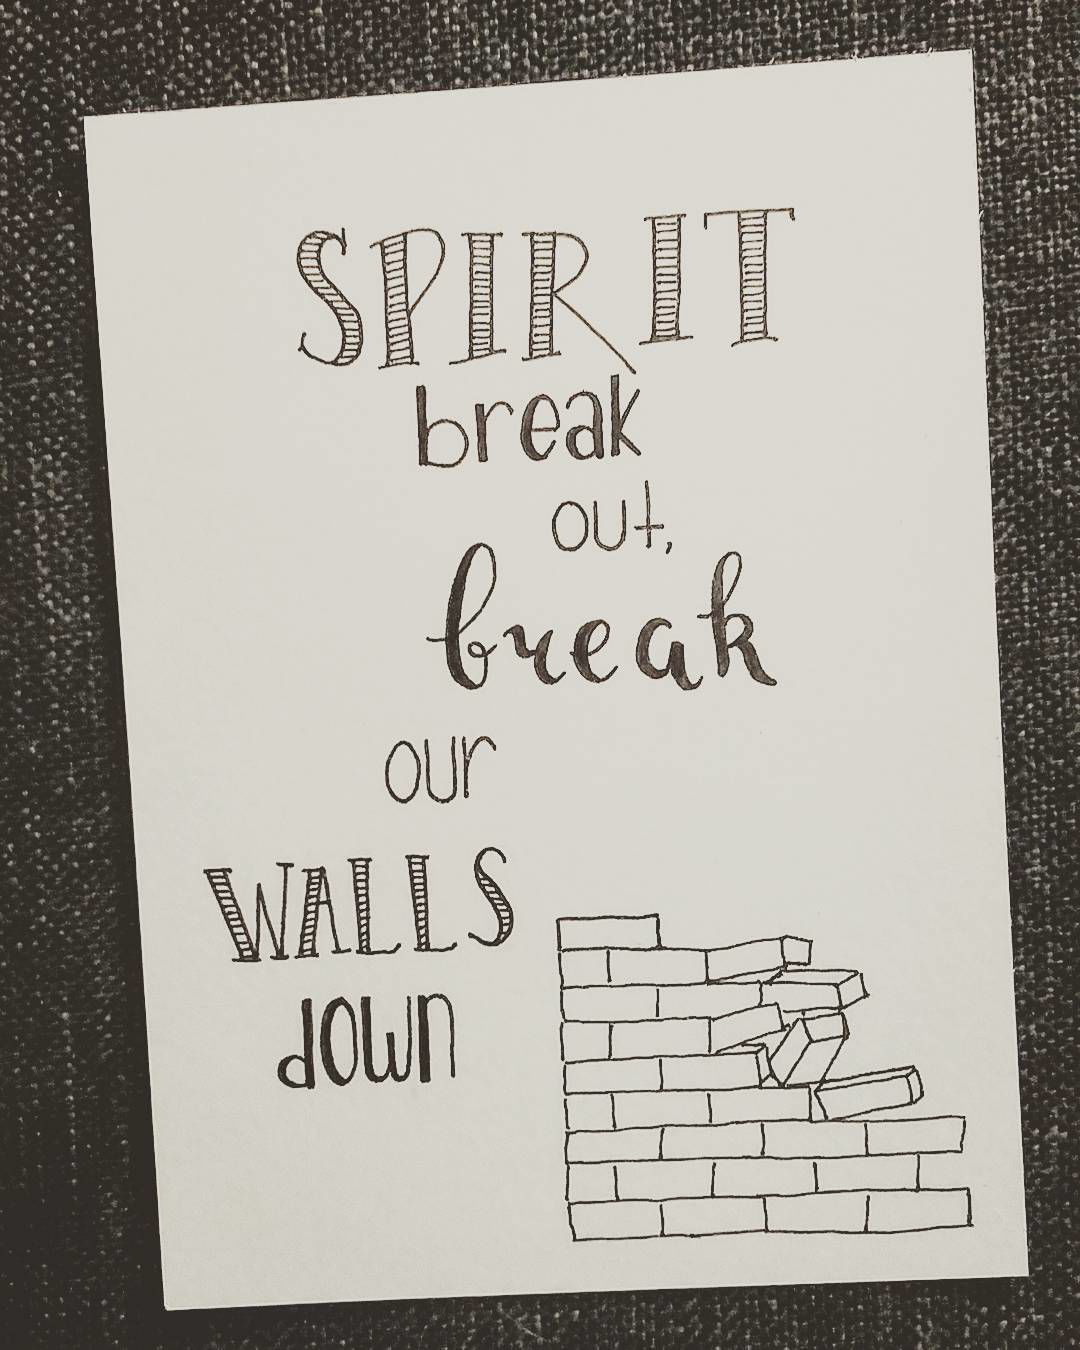 SPIRIT
break
out,
break
our
WALLS
down